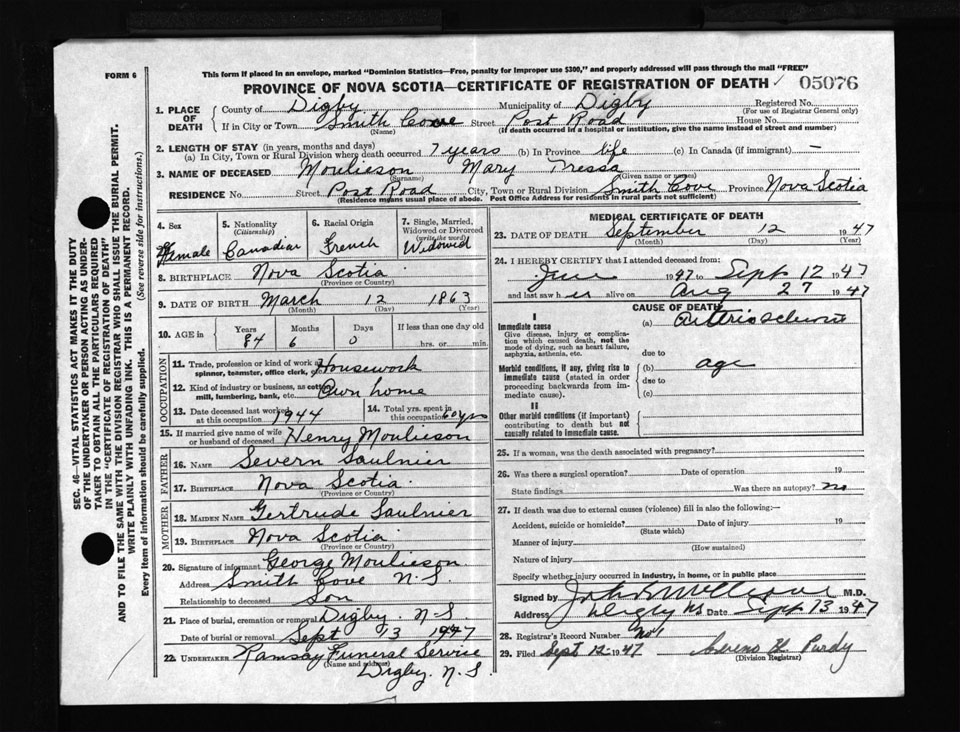 FORM 6
This form if placed in an envelope, marked "Dominion Statistics—Free, penalty for improper use $300," and properly addressed will pass through the mail "FREE"
PROVINCE OF NOVA SCOTIA—CERTIFICATE OF REGISTRATION OF DEATH 05076
1. PLACE OF DEATH County of Digby Municipality of Digby Registered No. (For use of Registrar General only)
If in City or Town Smith Cove (Name) Street Post Road House No.
(If death occurred in a hospital or institution, give the name instead of street and number)
2. LENGTH OF STAY (in years, months and days)
(a) In City, Town or Rural Division where death occurred 7 years (b) In Province life (c) In Canada (if immigrant) —
3. NAME OF DECEASED Moulieson (Surname) Mary Tressa (Given name or names)
RESIDENCE No. Street Post Road City, Town or Rural Division Smith Cove Province Nova Scotia
(Residence means usual place of abode. Post Office Address for residents in rural parts not sufficient)
4. Sex Female
5. Nationality (Citizenship) Canadian
6. Racial Origin French
7. Single, Married, Widowed or Divorced (write the word) Widowed
8. BIRTHPLACE Nova Scotia (Province or Country)
9. DATE OF BIRTH March 12 1863 (Month) (Day) (Year)
10. AGE in Years 84 Months 6 Days 0 If less than one day old hrs. or min.
OCCUPATION
11. Trade, profession or kind of work as spinner, teamster, office clerk, etc. Housework
12. Kind of industry or business, as cotton mill, lumbering, bank, etc. Own home
13. Date deceased last worked at this occupation 1944
14. Total yrs. spent in this occupation 60 yrs
15. If married give name of wife or husband of deceased Henry Moulieson
FATHER
16. NAME Severn Saulnier
17. BIRTHPLACE Nova Scotia (Province or Country)
MOTHER
18. MAIDEN NAME Gertrude Saulnier
19. BIRTHPLACE Nova Scotia (Province or Country)
20. Signature of informant George Moulieson
Address Smith Cove N.S.
Relationship to deceased Son
21. Place of burial, cremation or removal Digby N-S
Date of burial or removal Sept 13 1947
22. UNDERTAKER Ramsay Funeral Service (Name and address)
Digby. N.S.
MEDICAL CERTIFICATE OF DEATH
23. DATE OF DEATH September 12 1947 (Month) (Day) (Year)
24. I HEREBY CERTIFY that I attended deceased from:
June 1947 to Sept 12 1947
and last saw her alive on Aug 27 1947
CAUSE OF DEATH
I
Immediate cause
Give disease, injury or complication which caused death, not the mode of dying, such as heart failure, asphyxia, asthenia, etc.
(a)
due to
Morbid conditions, if any, giving rise to immediate cause (stated in order proceeding backwards from immediate cause).
(b) age
due to
(c)
II
Other morbid conditions (if important) contributing to death but not causally related to immediate cause.
25. If a woman, was the death associated with pregnancy?
26. Was there a surgical operation? Date of operation 19
State findings Was there an autopsy? no
27. If death was due to external causes (violence) fill in also the following:—
Accident, suicide or homicide? (State which) Date of injury 19
Manner of injury (How sustained)
Nature of injury
Specify whether injury occurred in industry, in home, or in public place
Signed by M.D.
Address Digby NS Date Sept 13 1947
28. Registrar's Record Number No 1
29. Filed Sept 12 1947 Purdy (Division Registrar)
SEC. 46—VITAL STATISTICS ACT MAKES IT THE DUTY
OF THE UNDERTAKER OR PERSON ACTING AS UNDER-
TAKER TO OBTAIN ALL THE PARTICULARS REQUIRED
IN THE "CERTIFICATE OF REGISTRATION OF DEATH"
AND TO FILE THE SAME WITH THE DIVISION REGISTRAR WHO SHALL ISSUE THE BURIAL PERMIT.
WRITE PLAINLY WITH UNFADING INK. THIS IS A PERMANENT RECORD.
Every item of information should be carefully supplied. (See reverse side for instructions.)